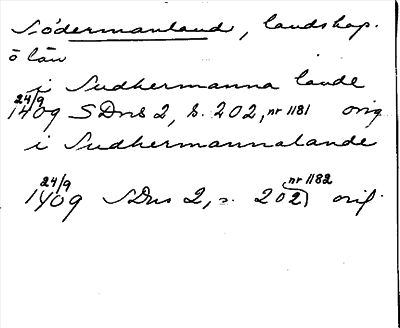 Södermanland, landskap.
o län
i Sudhermanna lande
24/9 1409 SDns 2, s. 202, nr 1181 orig
i Sudhermannalande
24/9 1409 SDns 2, s. 202, nr 1182 orig.